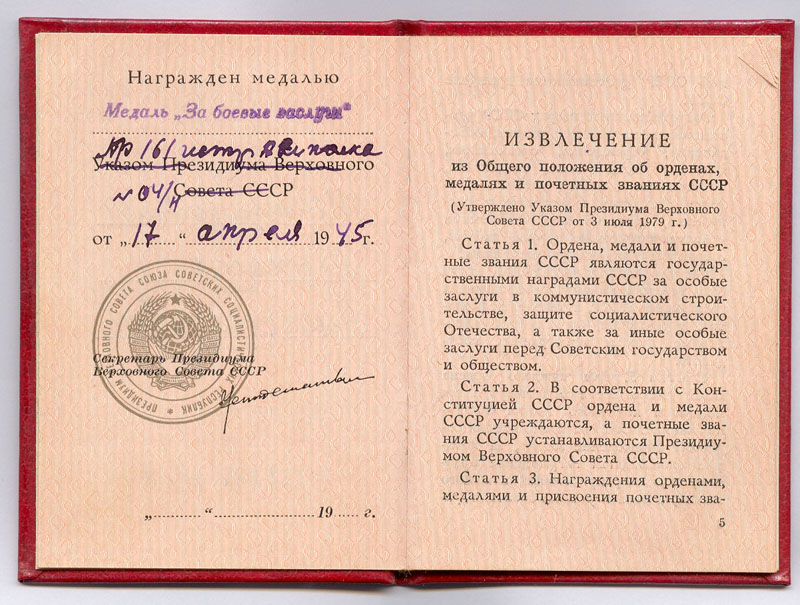 Награжден медалью
Медаль „За боевые заслуги"
Пр 161 истр. Авиполка
Указом Президиума Верховного
№ 04/н Совета СССР
от „17" апреля 1945г.
ПРЕЗИДИУМ ВЕРХОВНОГО СОВЕТА СОЮЗА СОВЕТСКИХ СОЦИАЛИСТИЧЕСКИХ РЕСПУБЛИК
Секретарь Президиума
Верховного Совета СССР
„ “ 19 г.
ИЗВЛЕЧЕНИЕ
из Общего положения об орденах,
медалях и почетных званиях СССР
(Утверждено Указом Президиума Верховного
Совета СССР от 3 июля 1979 г.)
Статья 1. Ордена, медали и почет-
ные звания СССР являются государ-
ственными наградами СССР за особые
заслуги в коммунистическом строи-
тельстве, защите социалистического
Отечества, а также за иные особые
заслуги перед Советским государством
и обществом.
Статья 2. В соответствии с Кон-
ституцией СССР ордена и медали
СССР учреждаются, а почетные зва-
ния СССР устанавливаются Президиу-
мом Верховного Совета СССР.
Статья 3. Награждения орденами,
медалями и присвоения почетных зва-
5